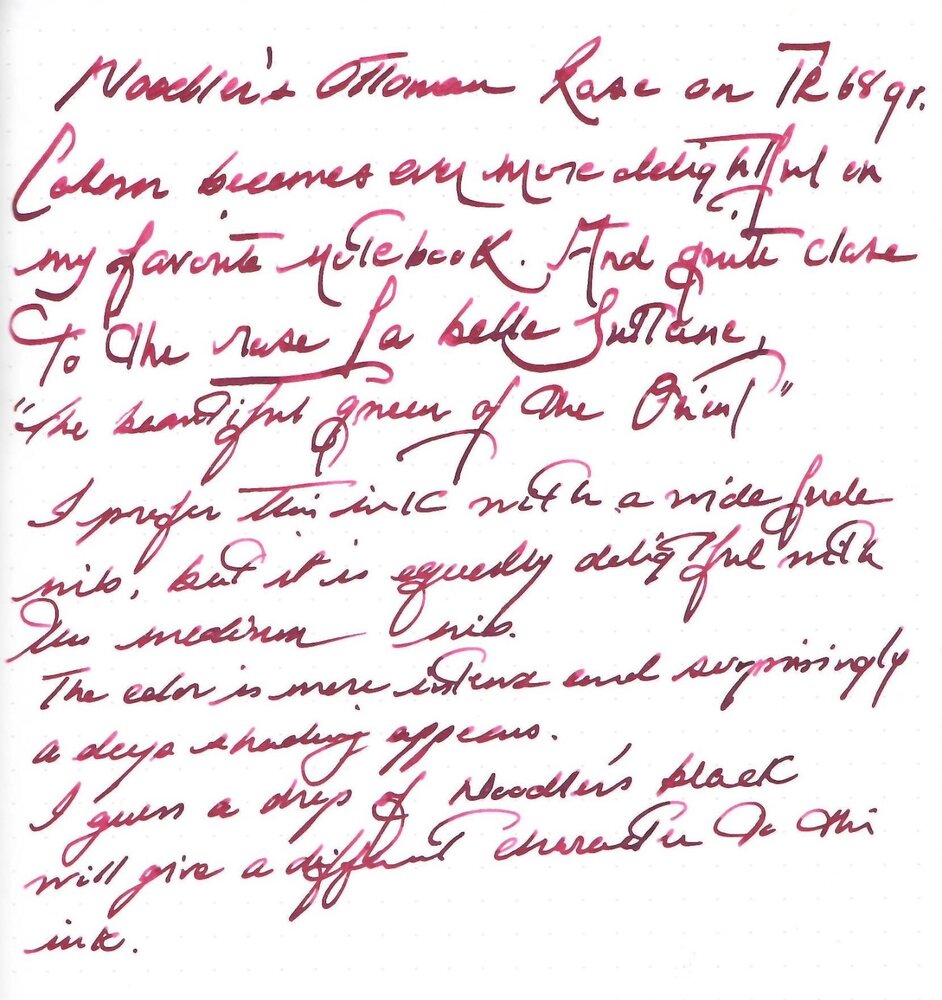 Noodler's Ottoman Rose on TR 68 gr.
becomes even more delightful on
my favorite notebook. And quite close
To the rose La belle Sultane,
"The beautiful queen of the Orient"
I prefer this ink with a wide fude
nib, but it is equally delightful with
medium nib.
The color is more intense and surprisingly
a deep shading appears.
I guess a drop of Noodler's black
will give a different character to this
ink.